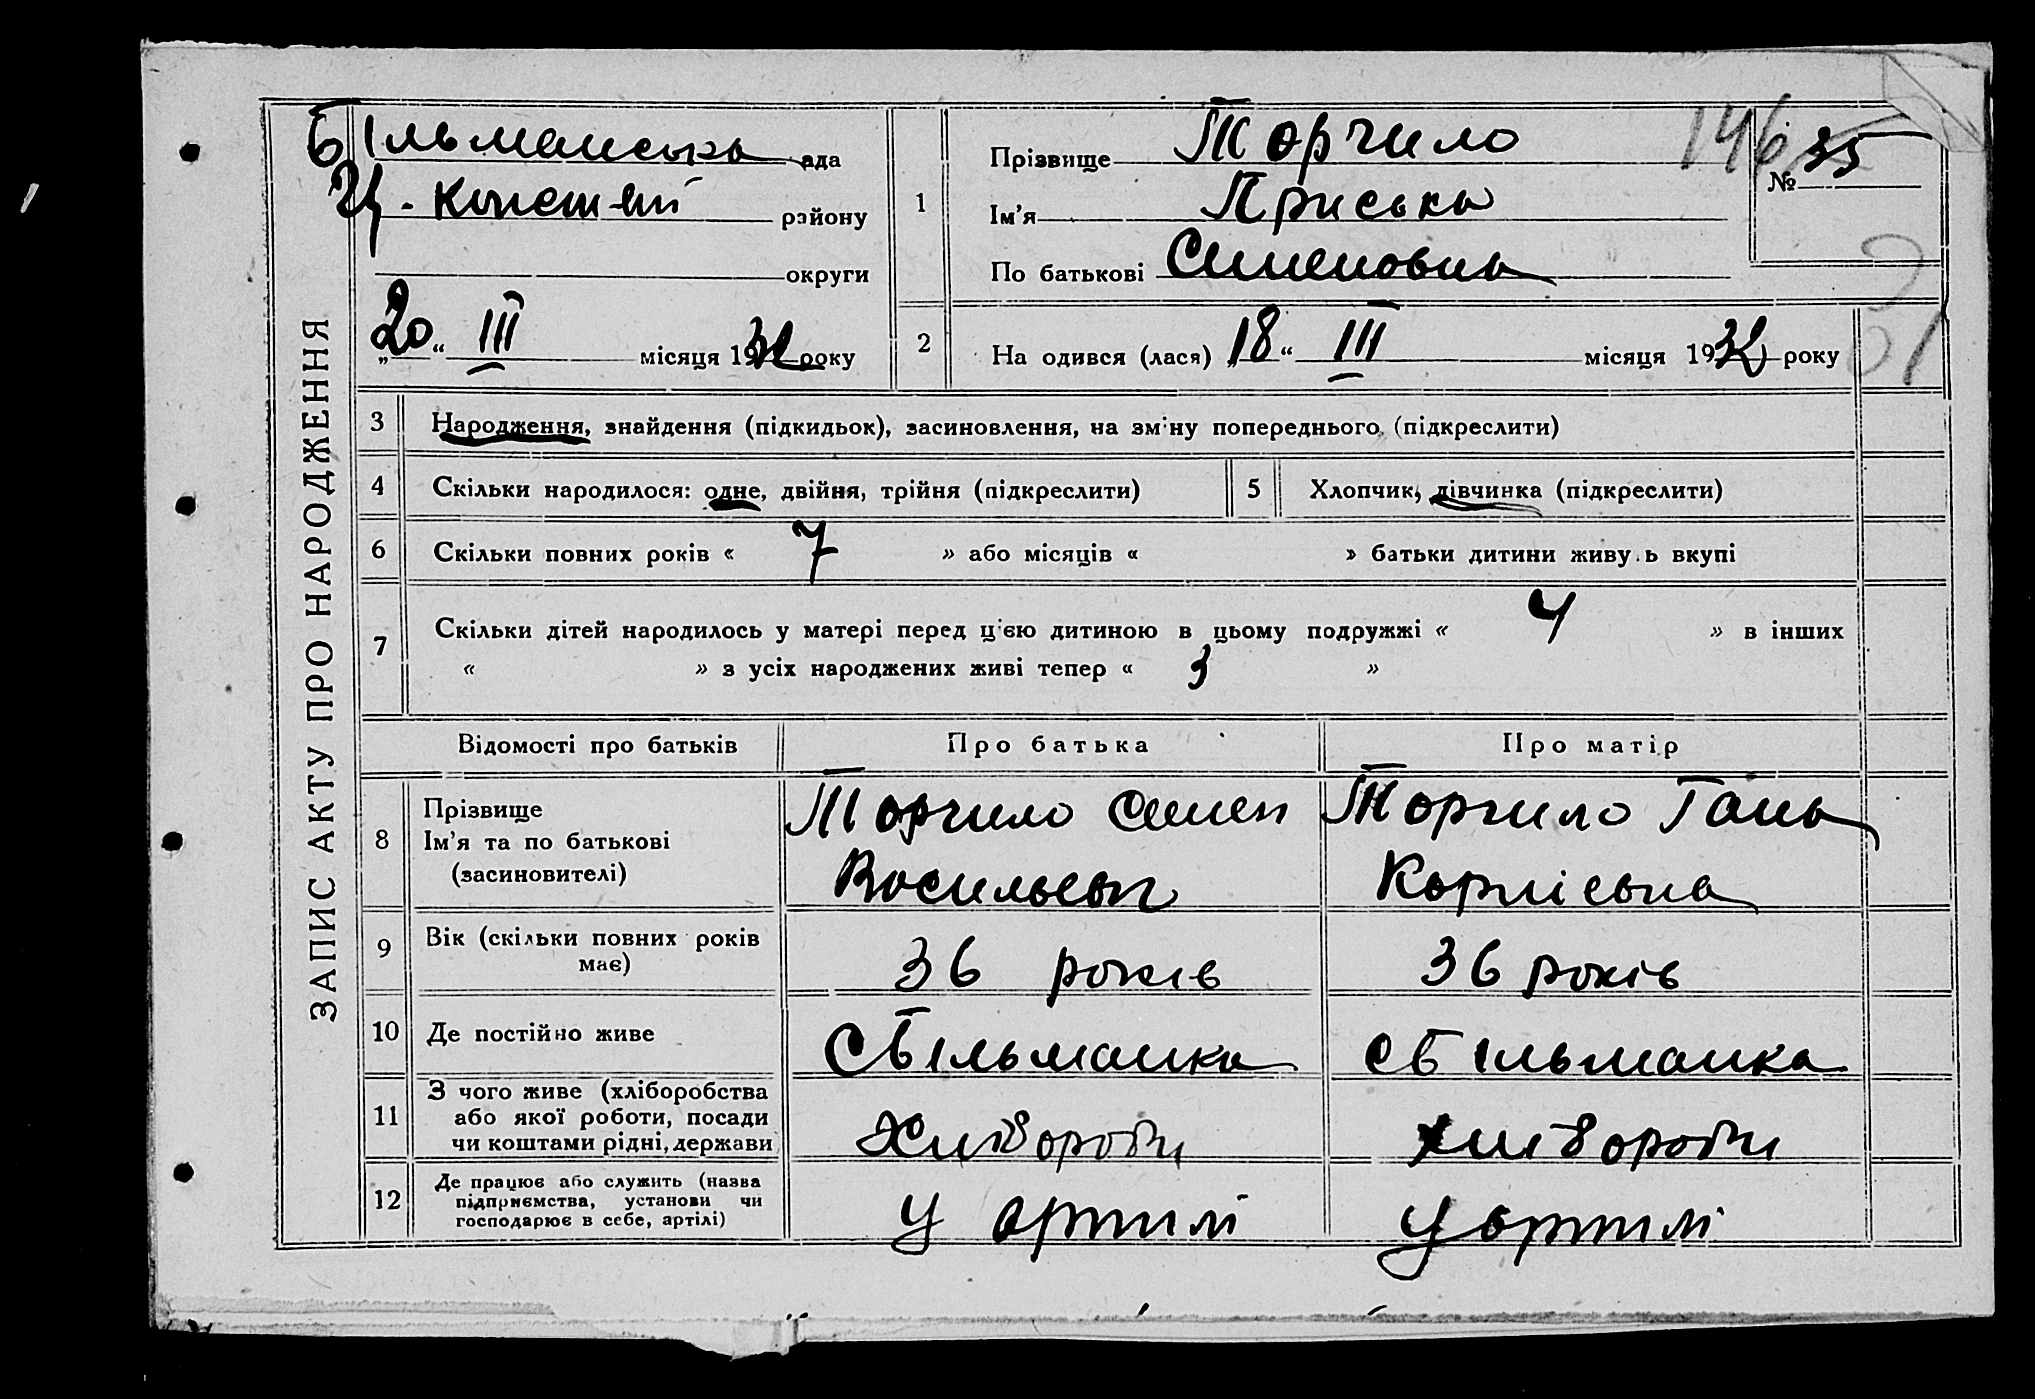 ЗАПИС АКТУ ПРО НАРОДЖЕННЯ
Більманська рада
Ц.-Констян району
округи
„20“ III місяця 1932 року
1
Прізвище Торчило
Ім'я Приська
По батькові Семеновна
146
№ 35
2
На одився (лася) „18“ III місяця 1932 року
3 Народження, знайдення (підкидьок), засиновлення, на зм:ну попереднього (підкреслити)
4 Скільки народилося: одне, двійня, трійня (підкреслити)
5 Хлопчик, дівчинка (підкреслити)
6 Скільки повних років « 7 » або місяців « » батьки дитини живу.ь вкупі
7 Скільки дітей народилось у матері перед ц:єю дитиною в цьому подружжі « 4 » в інших
« » з усіх народжених живі тепер « 3 »
Відомості про батьків Про батька Про матір
8 Прізвище
Ім'я та по батькові
(засиновителі)
Торчило Семен
Васильевич
Торчило Гань
Корнієвна
9 Вік (скільки повних років
має)
36 років
36 років
10 Де постійно живе
С Більманка
с Більманка
11 З чого живе (хліборобства
або якої роботи, посади
чи коштами рідні, держави
Хлібороби
хлібороби
12 Де працює або служить (назва
підприємства, установи чи
господарює в себе, артілі)
У артилі
У артилі